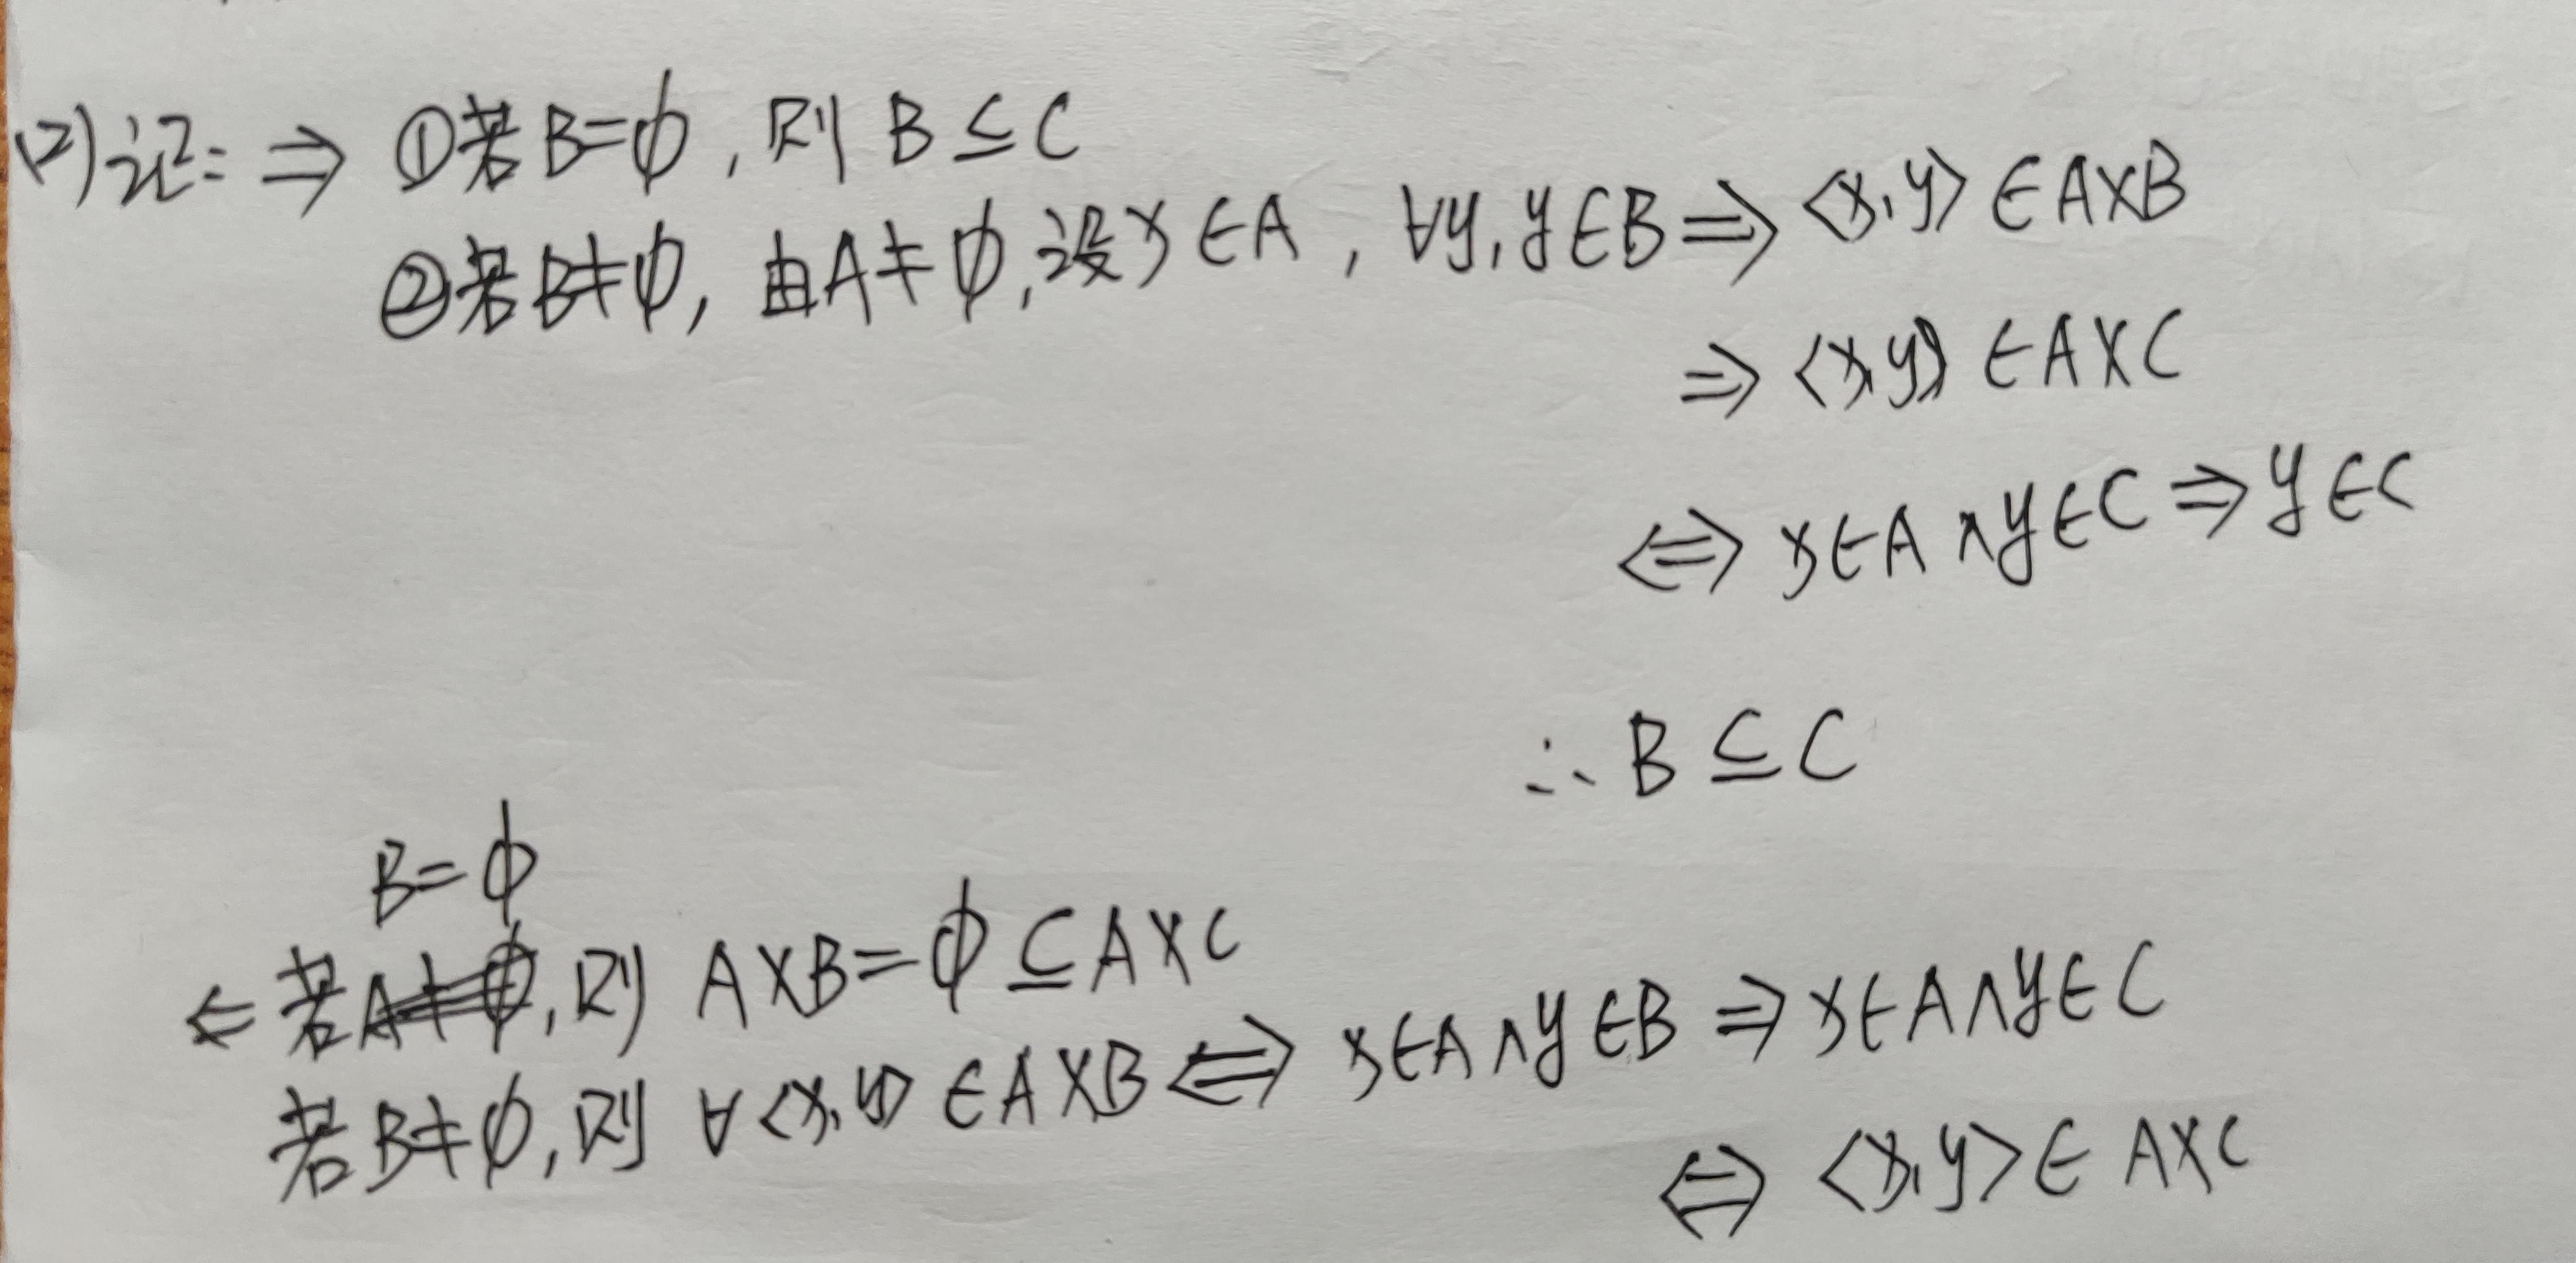 (2) 证: ⇒ ①若 B=φ, 则 B⊆C
②若 B≠φ, 由A≠φ, 设x∈A, ∀y, y∈B ⇒ <x,y>∈A×B
⇒ <x,y>∈A×C
⇔ x∈A∧y∈C ⇒ y∈C
∴ B⊆C
B=φ
⇐ 若A≠φ, 则 A×B=φ⊆A×C
若B≠φ, 则 ∀<x,y>∈A×B ⇔ x∈A∧y∈B ⇒ x∈A∧y∈C
⇔ <x,y>∈A×C